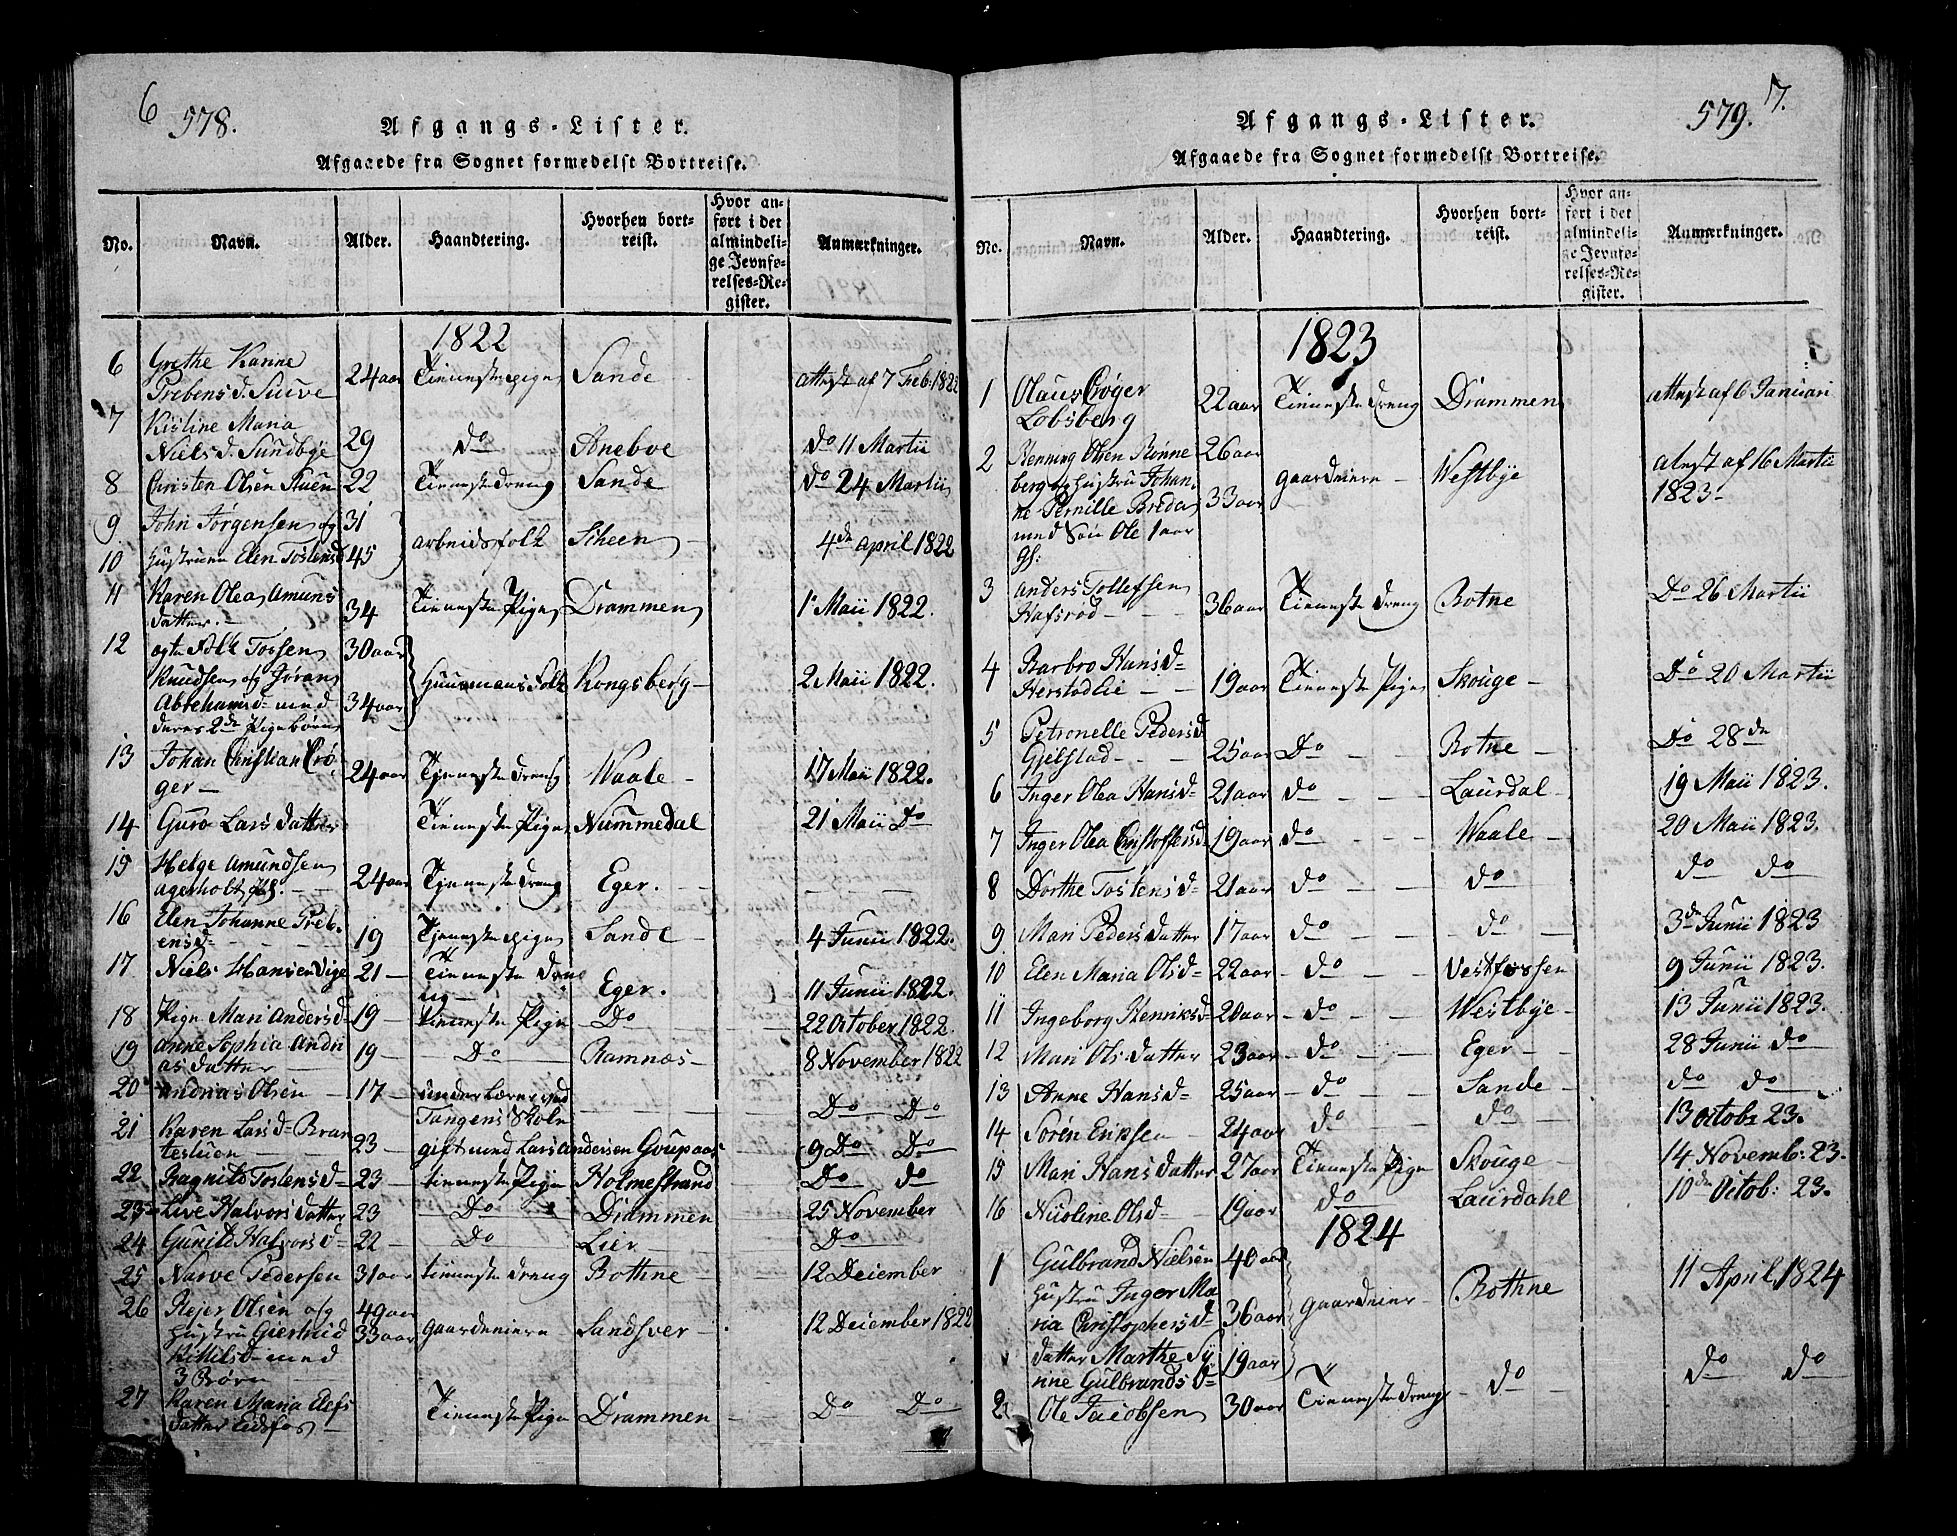 6 578.
Afgangs-Lister.
Afgaaede fra Sognet formedelst Bortreise.
No. Navn. Alder. Haandtering. Hvorhen bortreist. Hvor anført i det almindelige Jevnførelses-Register. Anmærkninger.
1822
6 Grethe Kanne
Prebens d. 24 aar Tieneste pige Sande Attest af 7 Feb: 1822
7 Kistine Maria
Niels d. Sundbye 29 do Aneboe do 11 Martii
8 Christen Olsen 22 Tieneste dreng Sande do 24 Martii
9 John Jørgensen og 31
10 Hustruen Elen Tostensd 45 arbeidsfolk Scheen 4de April 1822
11 Karen Olea Amuns
datter 34 Tieneste Pige Drammen 1 Maii 1822.
12 egte Folk Tossen 30 aar
Knudsen og Jøran
Abrahamsd med 34 aar Huusmansfolk Kongsberg 2 Maii 1822.
deres 2de Pigebørn
13 Johan Christian Crø
ger 24 aar Tjeneste dreng Waale 17 Maii 1822.
14 Guro Lars datter Tieneste Pige Nummedal 21 Maii Do
15 Helge Amundsen
agerholt 24 aar Tjeneste dreng Eger.
16 Elen Johanne Preb-
ensd 19 Tjeneste pige Sande 4 Junii 1822.
17 Niels Hansen Vige 21 Tieneste dreng Eger. 11 Junii 1822.
18 Pige Mari Andersd 19 tieneste Pige Do 22 October 1822.
19 Anne Sophia Andri
as datter 19 Do Ramnæs 8 November 1822
20 Andrias Olsen 17 underlærer ved
Tangens Skole Do Do
21 Karen Larsd Bran
testuen 23 gift med Lars Andersen 9 Do Do
22 Ragnild Tostensd 23 tieneste Pige Holmestrand Do do
23 Live Halvors datter 23 Do Drammen 25 November
24 Gunild Halvorsd 22 Do Lier Do
25 Narve Pedersen 31 aar tieneste dreng Bothne 12 December
26 Rejer Olsen og 49 aar
Hustru Giertrud 33 aar gaardeiere Sandsver 12 December 1822
Kittilsd med
3 Børn
27 Karen Maria Elefs
datter Eidsfos Tieneste Pige Drammen Do Do
579. 7.
Afgangs-Lister.
Afgaaede fra Sognet formedelst Bortreise.
No. Navn. Alder. Haandtering. Hvorhen bortreist. Hvor anført i det almindelige Jevnførelses-Register. Anmærkninger.
1823
1 Olaus Crøger
Lobsberg 22 aar Tieneste dreng Drammen Attest af 6 Januari
2 Henning Olsen Rønne 26 aar
berg og Hustru Johan
ne Pernille Breda 33 aar gaardeiere Westbye Attest af 16 Martii
1823
med Søn Ole 1 aar
gl:
3 Anders Tollefsen
Hafsrød 36 aar Tieneste dreng Botne Do 26 Martii
4 Barbro Hansd
Herstadlie 19 aar Tieneste Pige Skouge Do 20 Martii
5 Petronelle Pedersd
Gjelstad 25 aar Do Botne Do 28de
6 Inger Olea Hansd 21 aar do Laurdal 19 Maii 1823.
7 Inger Olea Christoffersd 19 aar do Waale 20 Maii 1823.
8 Dorthe Tostensd 21 aar do do do do
9 Mari Peders datter 17 aar do do 3de Junii 1823
10 Elen Maria Olsd 22 aar do Vestfossen 9 Junii 1823.
11 Ingeborg Henriksd 20 aar do Westbye 13 Junii 1823.
12 Mari Ols datter 23 aar do Eger 28 Junii do
13 Anne Hansd 25 aar do Sande do do
14 Søren Eriksen 24 aar do do 13 Octobr 23.
15 Mari Hans datter 27 aar Tieneste Pige Skouge 14 Novemb: 23.
16 Nicoline Olsd 19 aar do Laurdahl 10de Octob: 23.
1824
1 Gulbrand Nielsen 40 aar
Hustru Inger Ma
ria Christophersd 36 aar Gaardeier Bothne 11 April 1824
datter Marthe Sy 19 aar
nne Gulbrandsd
2 Ole Jacobsen 30 aar Tieneste dreng do do do